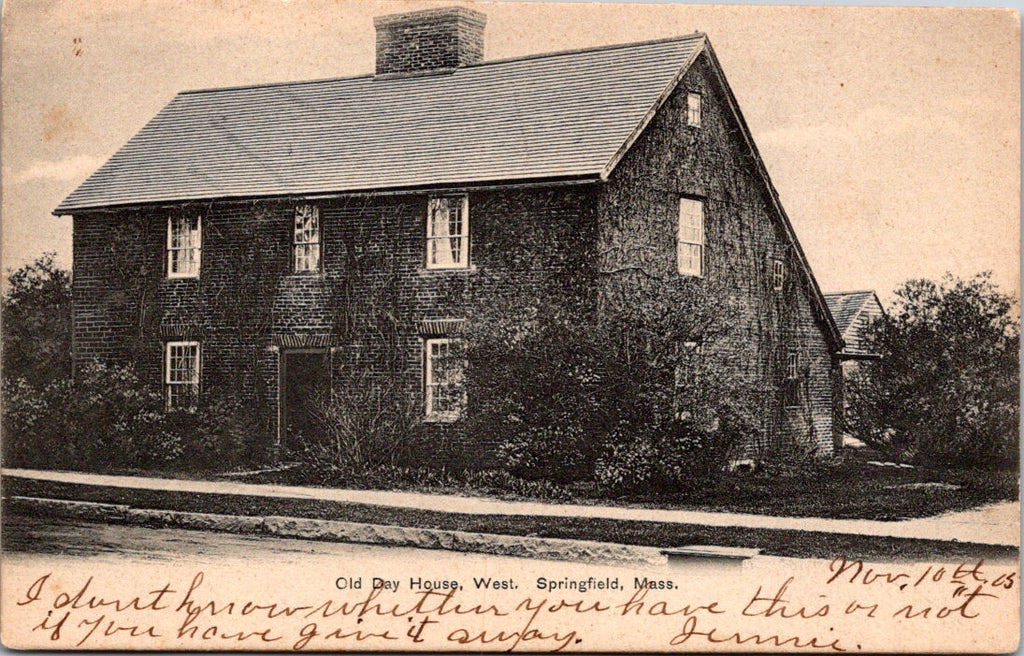 Old Day House, West. Springfield, Mass.
Nov. 10th. 05
I don't know whether you have this or not
if you have give it away. Jennie.